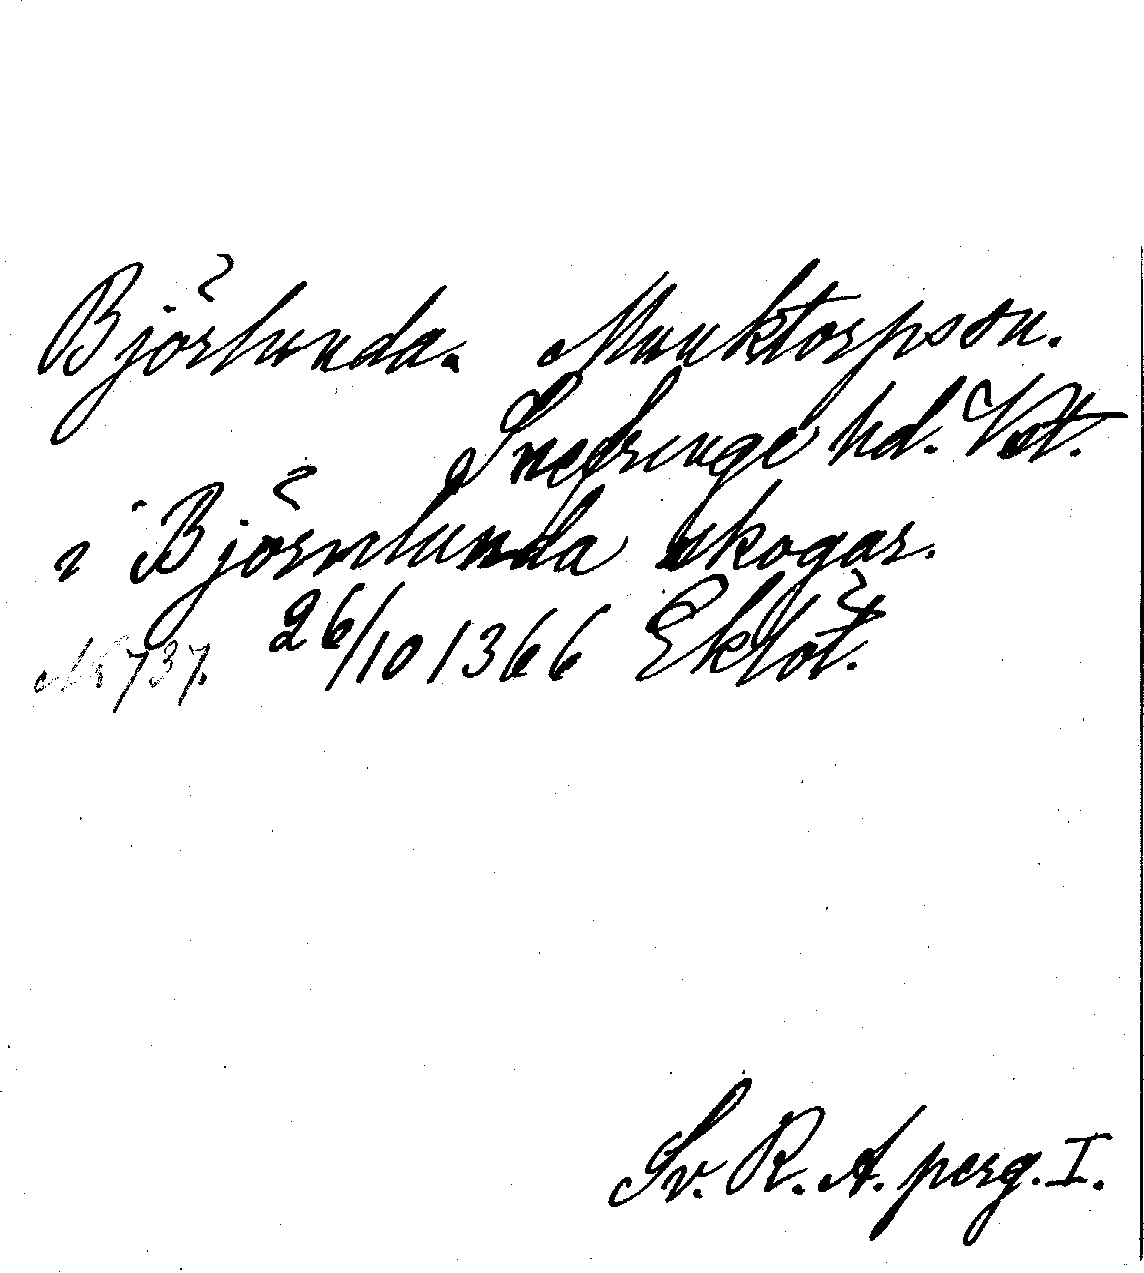 Björlunda. Munktorpsson.
Snefringe hd. Vst.
i Björnlunda skogar.
No 737. 26/10 1366 Eklöt.
Sv. R. A. perg. I.